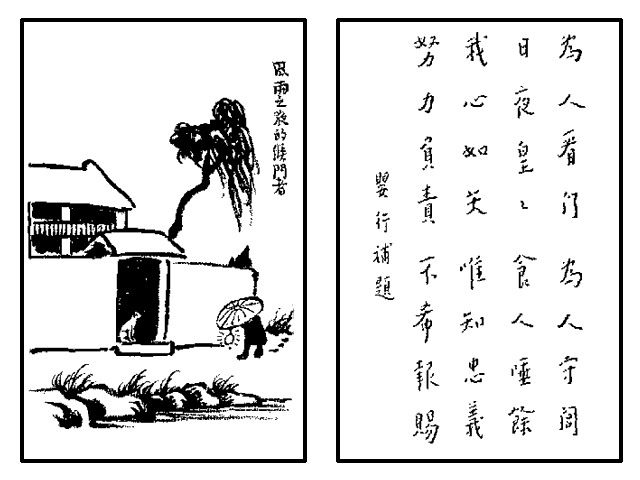 風雨之夜的候門者
為人看门為人守閽
日夜皇〻食人唾餘
我心如矢唯知忠義
努力負責不希報賜
嬰行補題